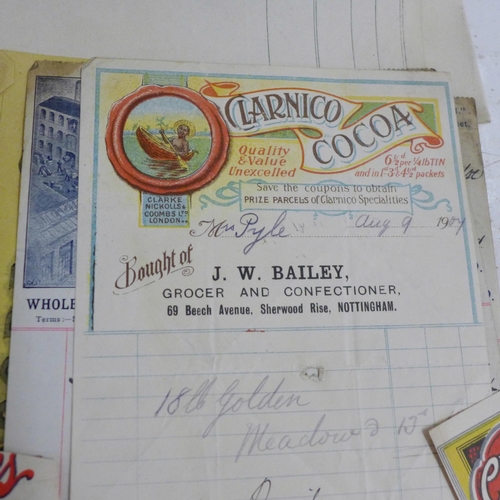 CLARNICO
COCOA
Quality
& Value
Unexcelled
6½d per ¼ lb TIN
and in 1d 3d & 4½d packets
Save the coupons to obtain
PRIZE PARCELS of Clarnico Specialities
CLARKE
NICKOLLS &
COOMBS LTD
LONDON
Mrs Pyle Aug 9 19
Bought of
J. W. BAILEY,
GROCER AND CONFECTIONER,
69 Beech Avenue, Sherwood Rise, NOTTINGHAM.
WHOLE
Terms:
18 lb Golden
Meadow